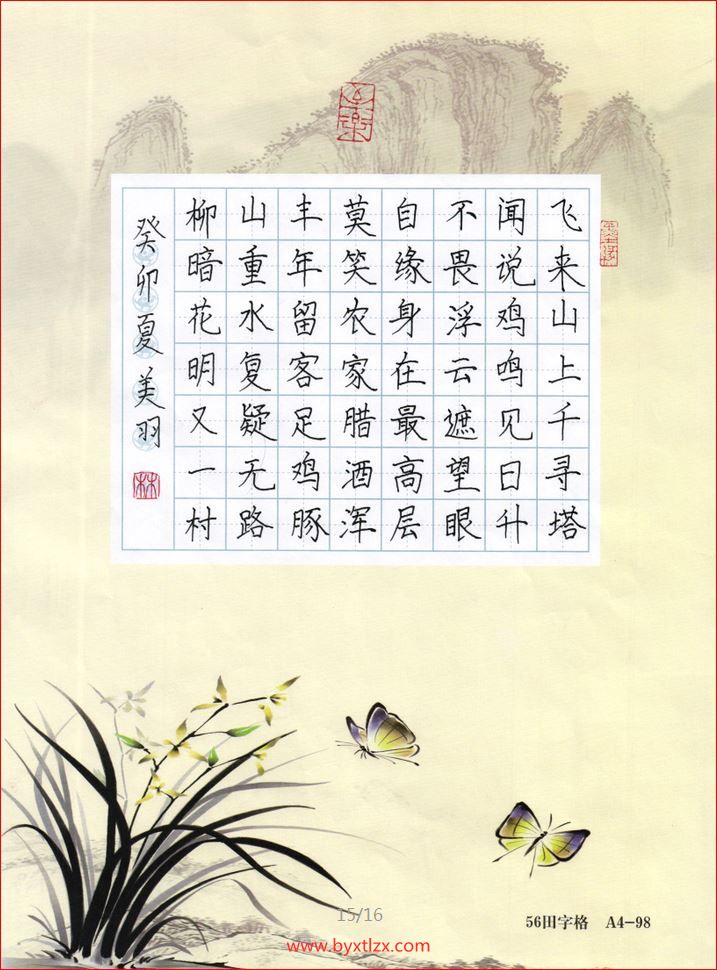 飞来山上千寻塔
闻说鸡鸣见日升
不畏浮云遮望眼
自缘身在最高层
莫笑农家腊酒浑
丰年留客足鸡豚
山重水复疑无路
柳暗花明又一村
癸卯夏美羽
林
15/16
www.byxtlzx.com
56田字格 A4-98